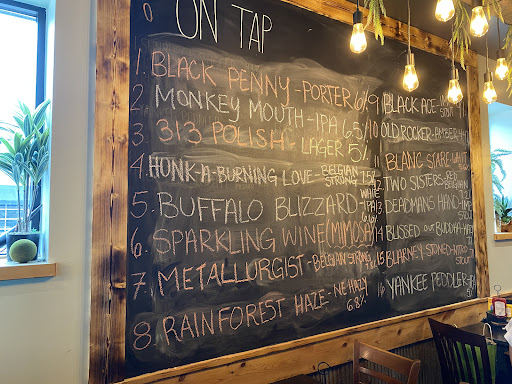 ON TAP
1. BLACK PENNY-PORTER 6%
2. MONKEY MOUTH-IPA 6.5%
3. 313 POLISH-LAGER 5%
4. HONK-A-BURNING LOVE-BELGIAN STRONG
5. BUFFALO BLIZZARD-WHITE IPA
6. SPARKLING WINE (MIMOSA)
7. METALLURGIST-BELGIAN STRONG
8. RAINFOREST HAZE-NE HAZY 6.8%
9 BLACK ACE-
10 OLD ROCKER-AMBER
11 BLANC
12 TWO SISTERS-RED BELGIAN
13 DEADMANS HAND-
14 BLISSED OUT BUDDHA-
15 BLARNEY STONED-NITRO STOUT
16 YANKEE PEDDLER-